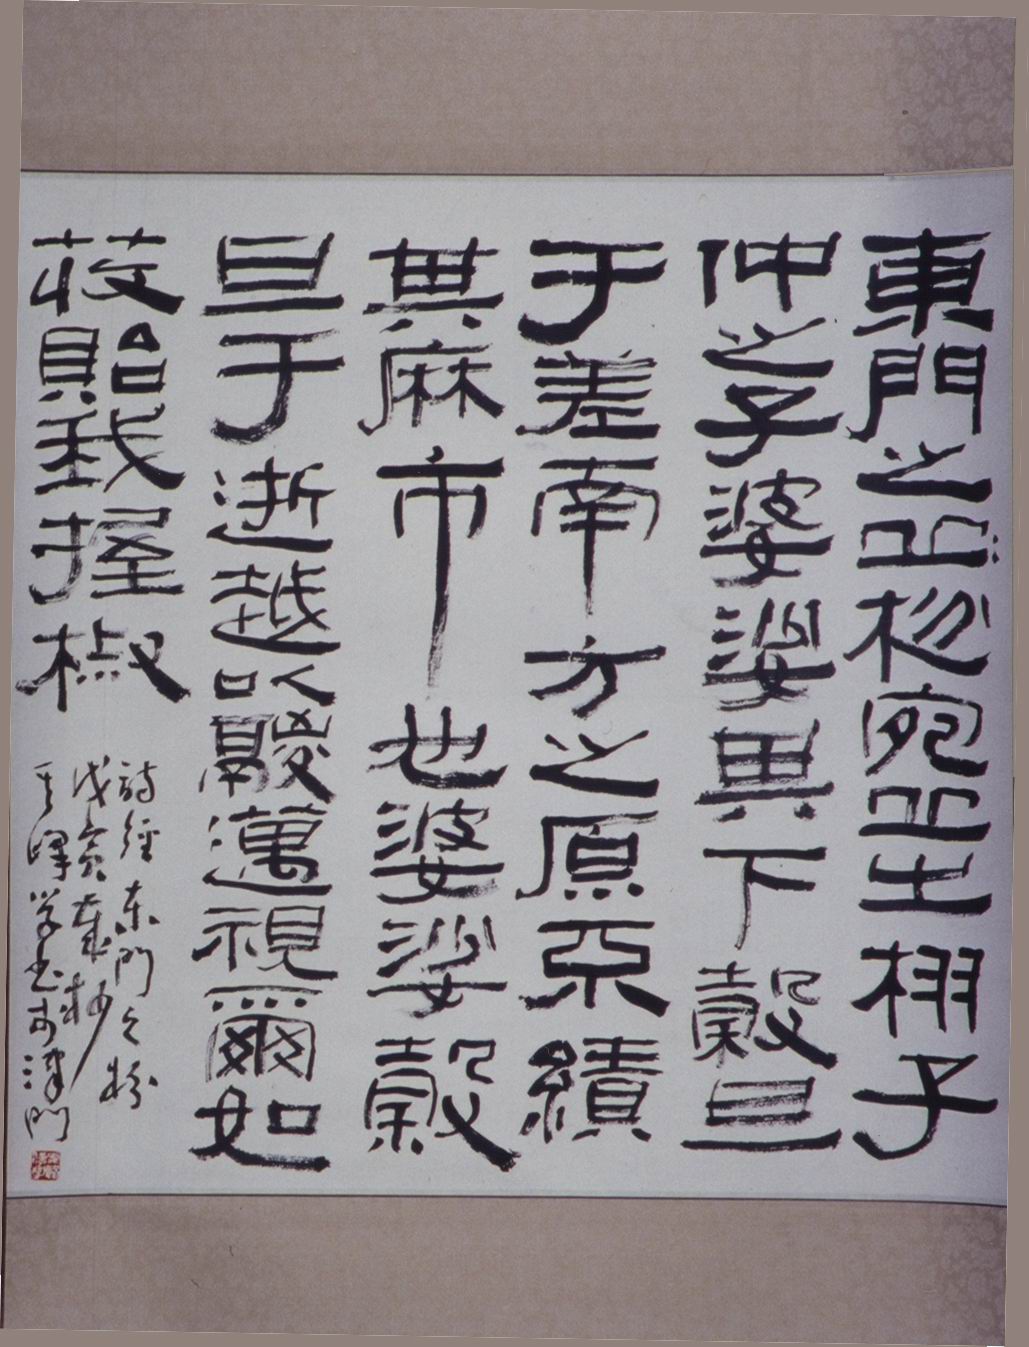 東門之丘枌宛丘之栩子
仲之子婆娑其下穀旦
于差南方之原不績
其麻市也婆娑穀
旦于逝越以鬷邁視爾如
荍貽我握椒
詩經东門之枌
戊寅歲杪
学书於津門